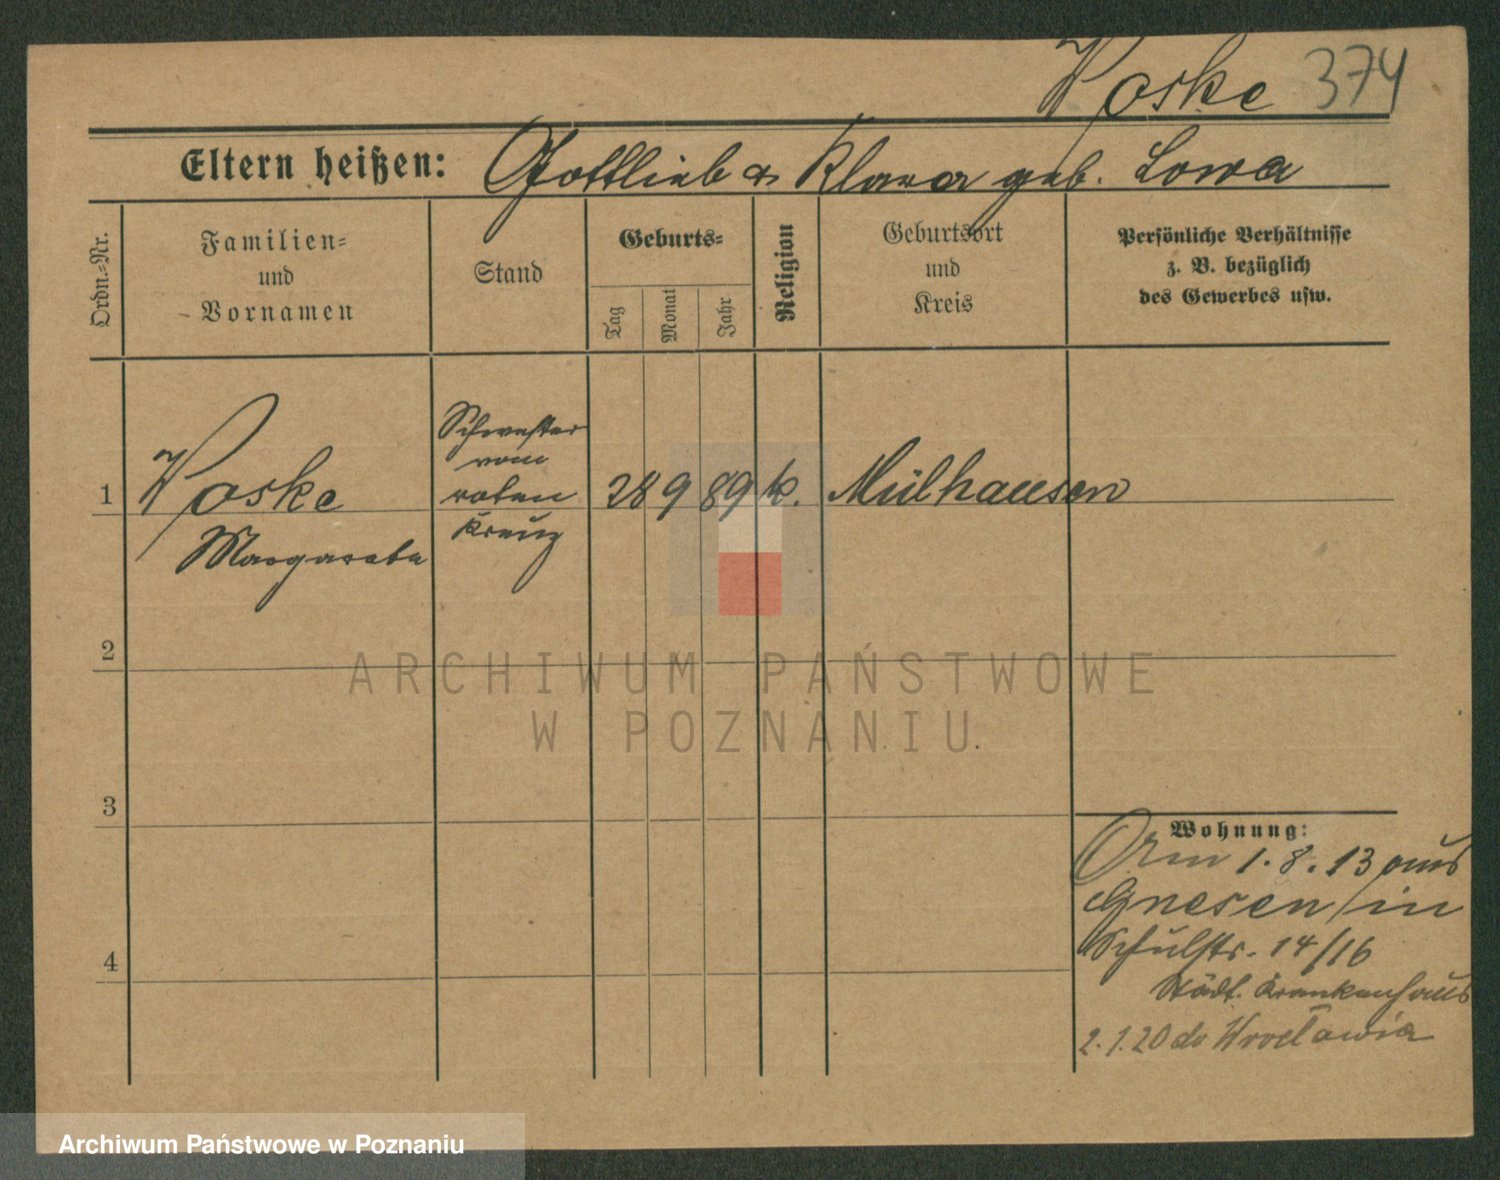 Woske 374
Eltern heißen: Gottlieb & Klara geb. Lowa
Ordn.-Nr.
Familien-
und
Vornamen
Stand
Geburts-
Tag
Monat
Jahr
Religion
Geburtsort
und
Kreis
Persönliche Verhältnisse
z. B. bezüglich
des Gewerbes usw.
1
Woske
Margarete
Schwester
vom
roten
Kreuz
28 9 89 k. Mülhausen
2
ARCHIWUM PAŃSTWOWE
W POZNANIU
3
4
Wohnung:
Am 1.8.13 aus
Gnesen in
Schulstr. 14/16
Städt. Krankenhaus
2.1.20 do Wrocławia
Archiwum Państwowe w Poznaniu